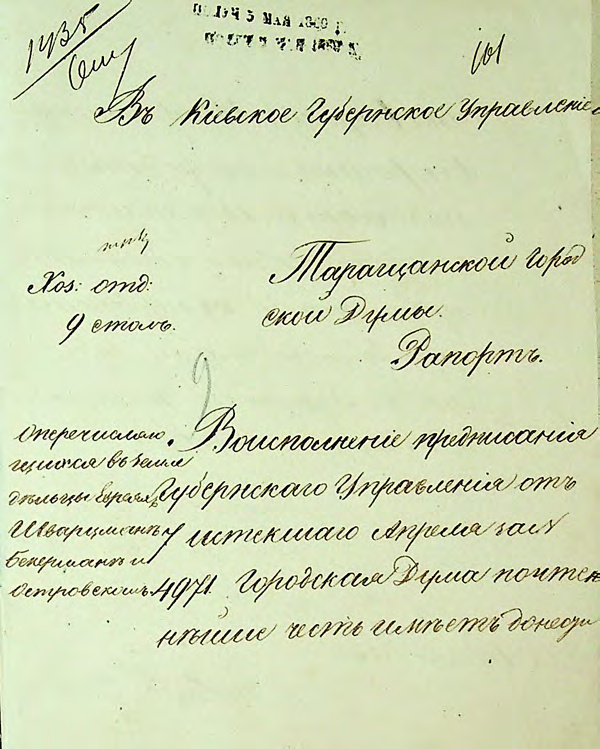 1735
101
Въ Кіевское Губернское Управленіе
Хоз: отд:
9 столъ.
Таращанской Город
ской Думы.
Рапортъ.
9
Оперечисляю
щихся въ земле
дѣльцы Евреяхъ
Шварцманѣ
Бекерманѣ и
Островскомъ
Воисполненіе предписанія
Губернскаго Управленія отъ
7 истекшаго Апреля за №
4971. Городская Дума почтен
нѣйше честь имѣетъ донести